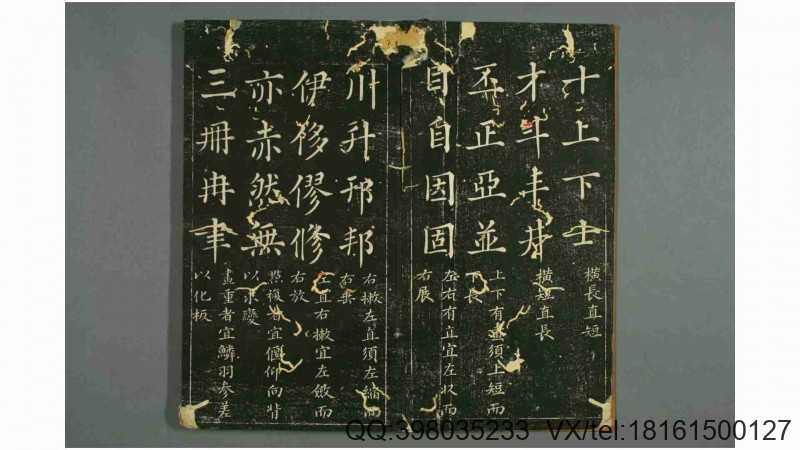 十上下士
橫長直短
才斗丰
橫短直長
丕正亞並
上下有畫須上短而
下長
目自因固
左右有直宜左收而
右展
川升邢邦
右撇左直須左縮而
右垂
伊侈僇修
左直右撇宜左斂而
右放
亦赤然無
點複者宜偃仰向背
以求變
三冊冉聿
畫重者宜鱗羽參差
以化板
QQ:398035233 VX/tel:18161500127